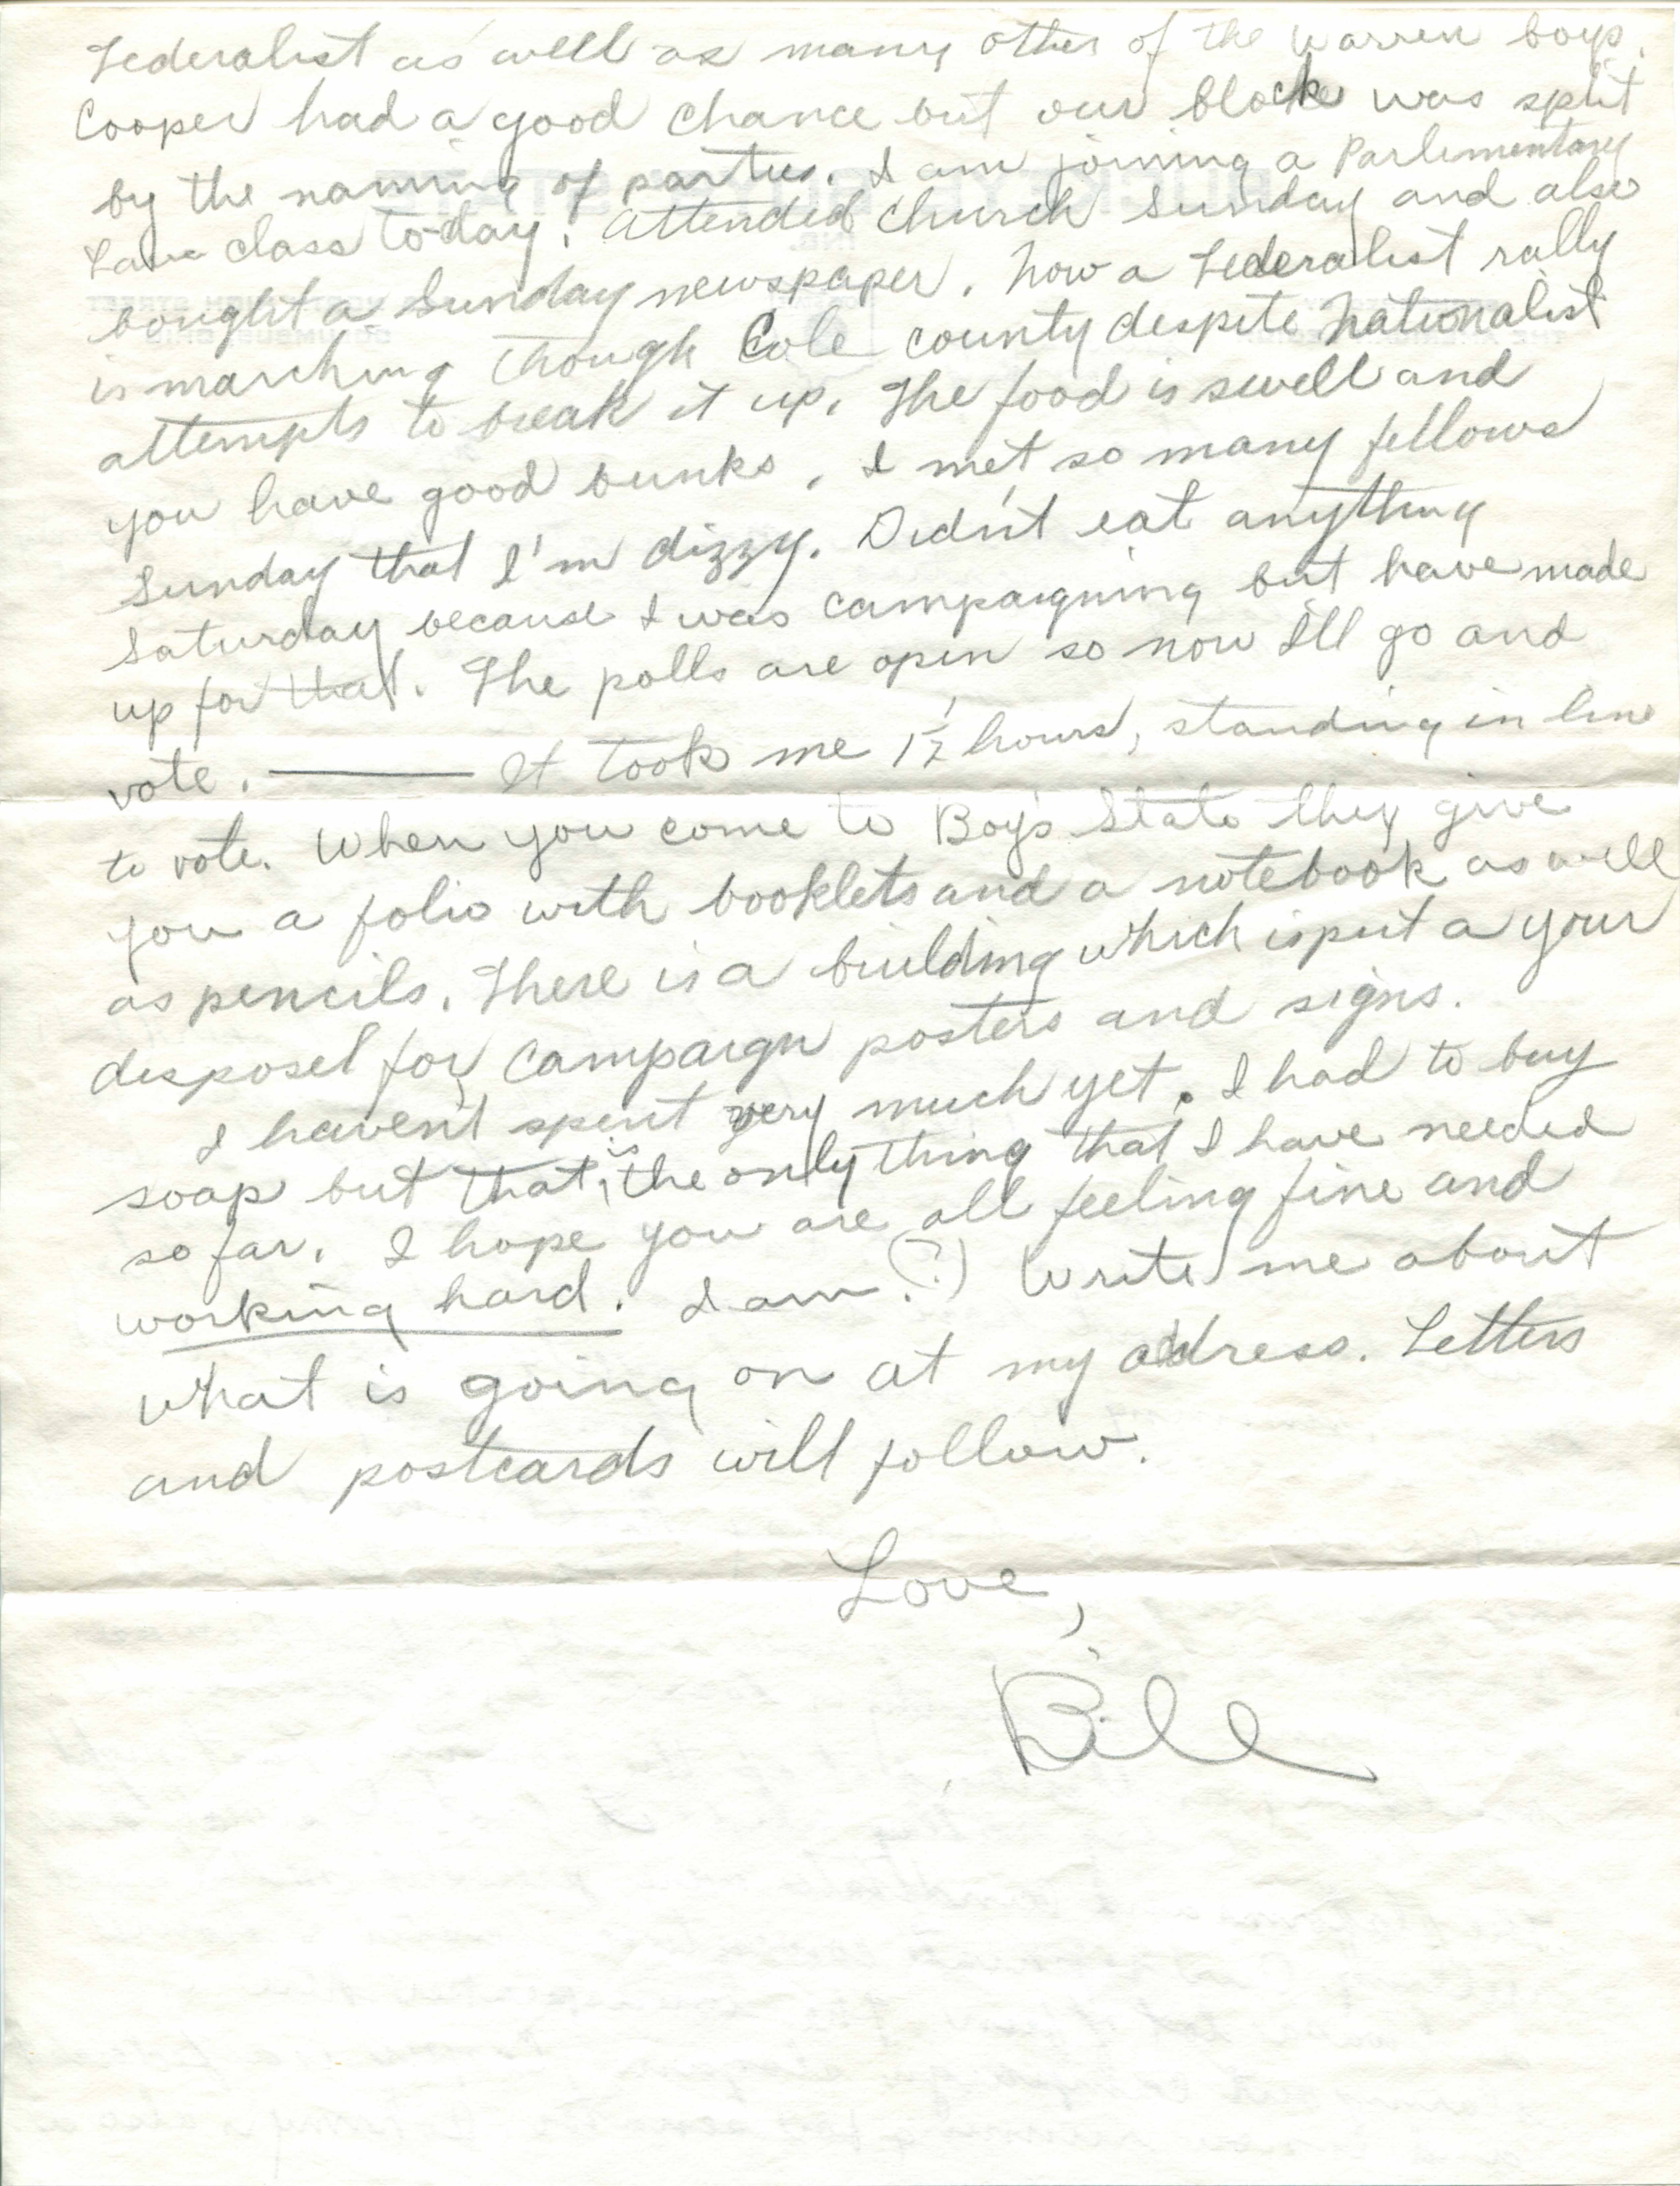 Federalist as well as many other of the Warren boys.
Cooper had a good chance but our block was split
by the naming of parties. I am joining a Parlimentary
Law class to-day. Attended church Sunday and also
bought a Sunday newspaper. Now a Federalist rally
is marching though Cole county despite Nationalist
attempts to break it up. The food is swell and
you have good bunks. I met so many fellows
Sunday that I'm dizzy. Didn't eat anything
Saturday because I was campaigning but have made
up for that. The polls are open so now I'll go and
vote. ——— It took me 1 1/2 hours, standing in line
to vote. When you come to Boy's State they give
you a folio with booklets and a notebook as well
as pencils. There is a building which is put a your
disposel for campaign posters and signs.
I haven't spent very much yet. I had to buy
soap but that is the only thing that I have needed
so far. I hope you are all feeling fine and
working hard. I am. (?) Write me about
what is going on at my address. Letters
and postcards will follow.
Love,
Bill